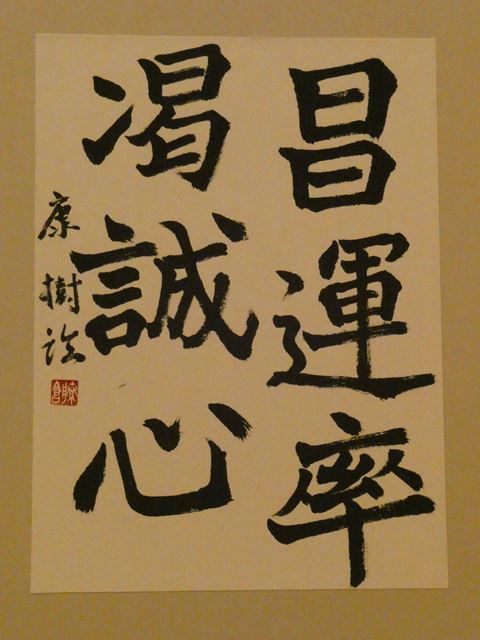 昌運率
渴誠心
康樹